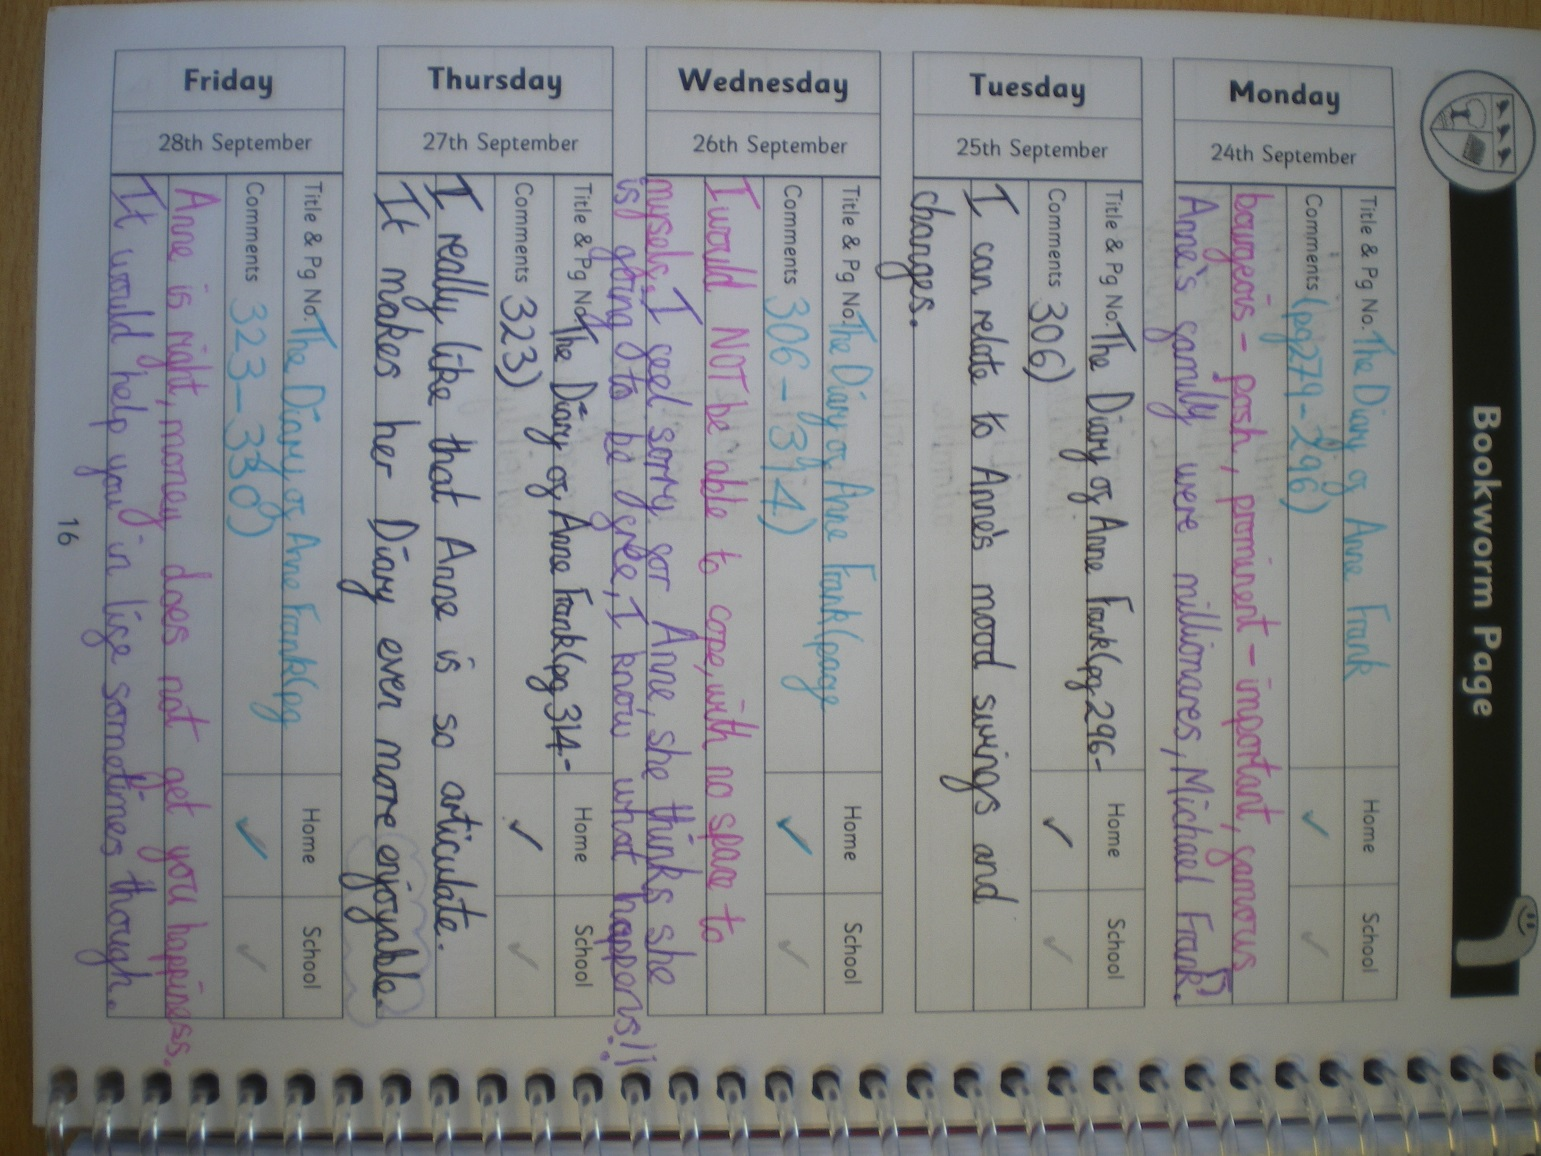 Bookworm Page
Monday
24th September
Title & Pg No. The Diary of Anne Frank
Home
School
Comments (pg279-296)
✓
✓
bourgeois - posh, prominent - important, famous
Anne's family were millionares, Michael Frank?
Tuesday
25th September
Title & Pg No. The Diary of Anne Frank (pg 296-
Home
School
Comments 306)
✓
✓
I can relate to Anne's mood swings and
changes.
Wednesday
26th September
Title & Pg No. The Diary of Anne Frank (page
Home
School
Comments 306-314)
✓
✓
I would NOT be able to cope, with no space to
myself. I feel sorry for Anne, she thinks she
is going to be free, I know what happens!!
Thursday
27th September
Title & Pg No. The Diary of Anne Frank (pg 314-
Home
School
Comments 323)
✓
✓
I really like that Anne is so articulate.
It makes her Diary even more enjoyable.
Friday
28th September
Title & Pg No. The Diary of Anne Frank (pg
Home
School
Comments 323-330)
✓
✓
Anne is right, money does not get you happiness.
It would help you in life sometimes though.
16